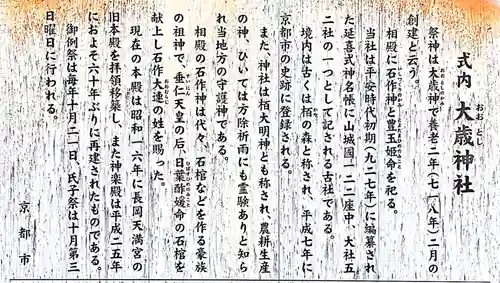 式内 大歳神社
おお とし
祭神は大歳神で養老二年(七一八年)二月の
創建と云う。
相殿に石作神と豊玉姫命を祀る。
当社は平安時代初期(九二七年)に編纂され
た延喜式神名帳に山城國一二二座中、大社五
二社の一つとして記される古社である。
境内は古くは栢の森と称され、平成七年に
京都市の史跡に登録される。
また、神社は栢大明神とも称され、農耕生産
の神、ひいては方除祈雨にも霊験ありと知ら
れ当地方の守護神である。
相殿の石作神は代々、石棺などを作る豪族
の祖神で、垂仁天皇の后、日葉酢媛命の石棺を
献上し石作大連の姓を賜った。
現在の本殿は昭和一六年に長岡天満宮の
旧本殿を拝領移築し、また神楽殿は平成二五年
におよそ六十年ぶりに再建されたものである。
御例祭は毎年十月二一日、氏子祭は十月第三
日曜日に行われる。
京都市